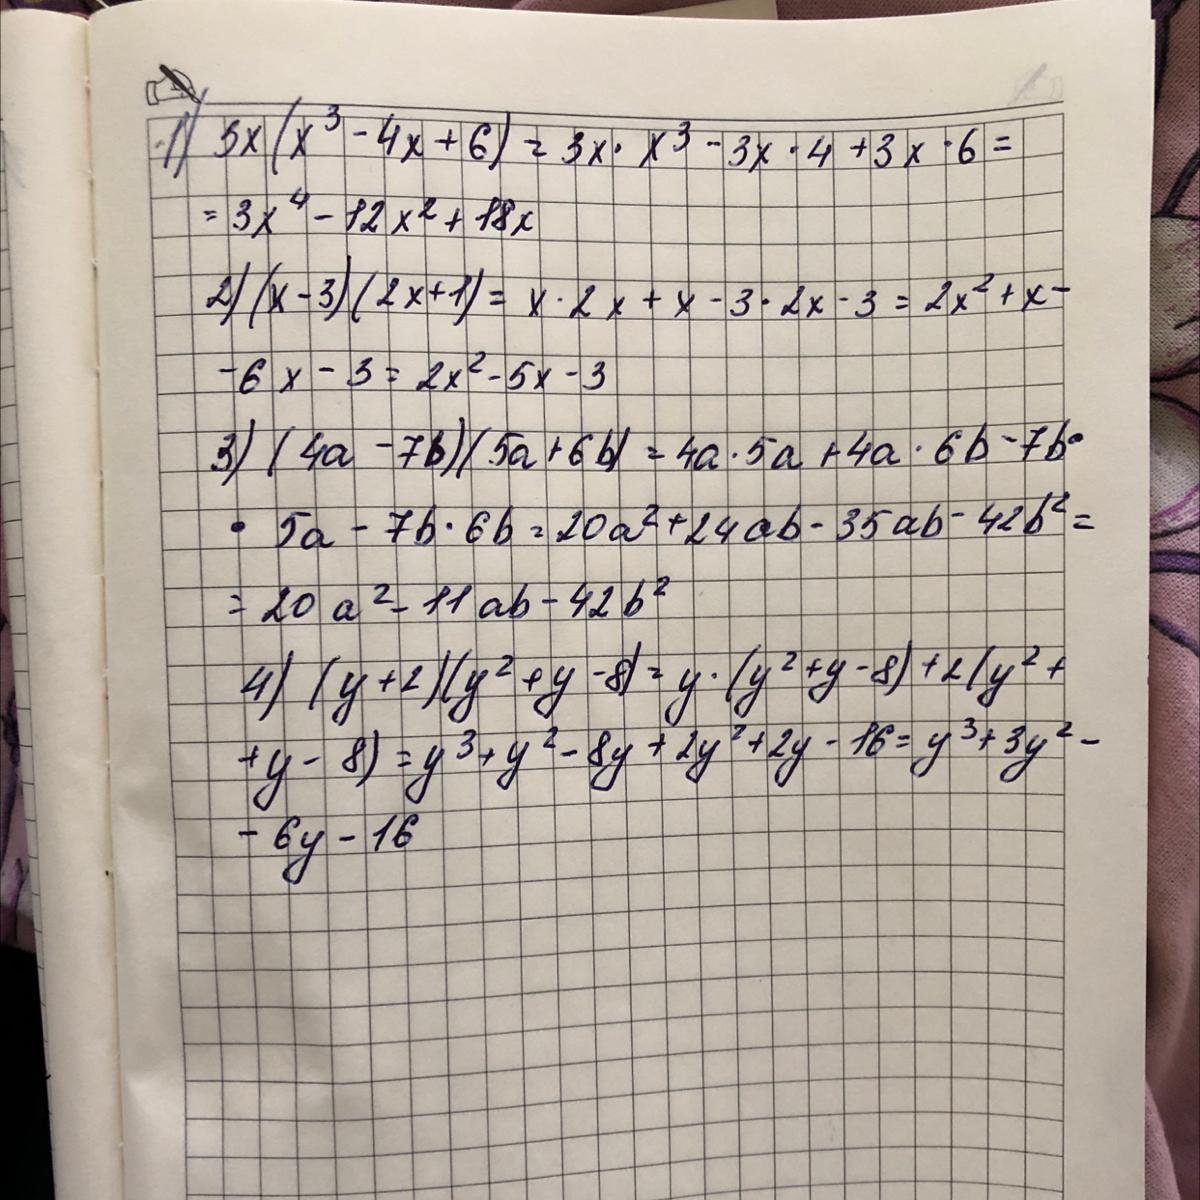 1) 3x(x³ - 4x + 6) = 3x · x³ - 3x · 4 + 3x · 6 =
= 3x⁴ - 12x² + 18x
2) (x - 3)(2x + 1) = x · 2x + x - 3 · 2x - 3 = 2x² + x -
- 6x - 3 = 2x² - 5x - 3
3) (4a - 7b)(5a + 6b) = 4a · 5a + 4a · 6b - 7b ·
· 5a - 7b · 6b = 20a² + 24ab - 35ab - 42b² =
= 20a² - 11ab - 42b²
4) (y + 2)(y² + y - 8) = y · (y² + y - 8) + 2(y² +
+ y - 8) = y³ + y² - 8y + 2y² + 2y - 16 = y³ + 3y² -
- 6y - 16